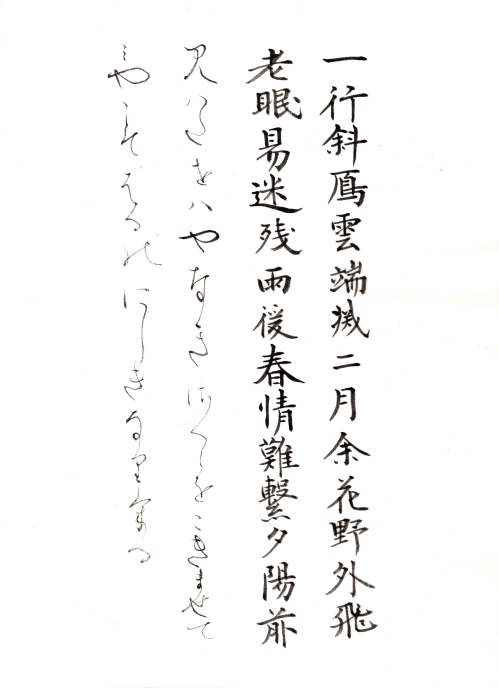 一行斜鴈雲端滅二月余花野外飛
老眠易迷残雨後春情難繋夕陽前
見ハたせハやなきさくらをこきませて
みやこそはるのにしきなりける